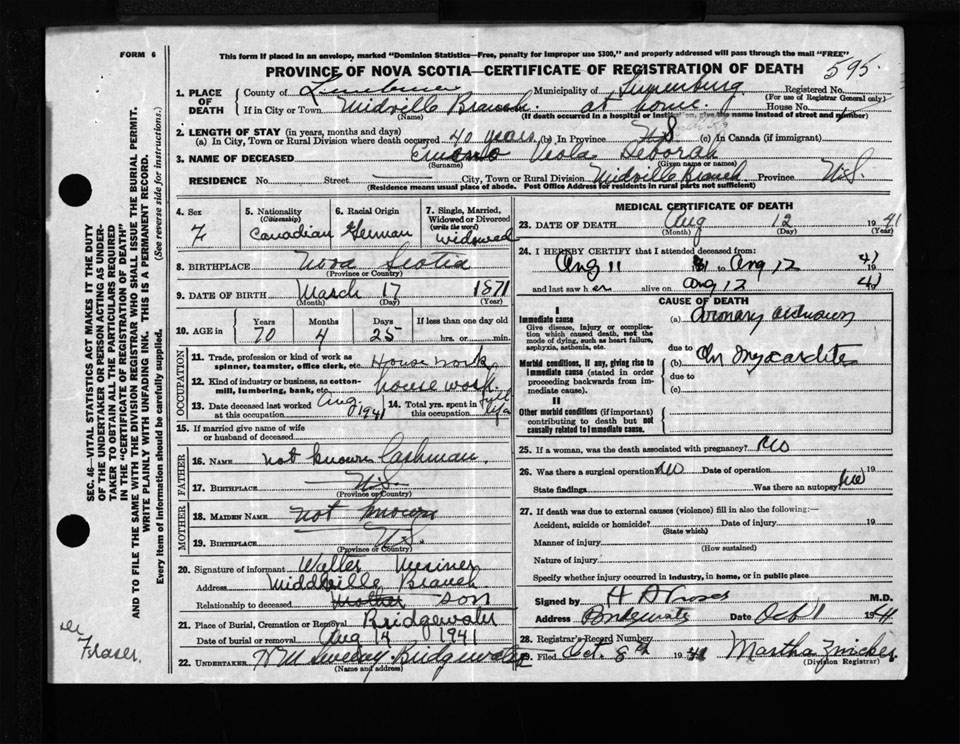 FORM 6
This form if placed in an envelope, marked "Dominion Statistics—Free, penalty for improper use $300," and properly addressed will pass through the mail "FREE"
PROVINCE OF NOVA SCOTIA—CERTIFICATE OF REGISTRATION OF DEATH 595.
1. PLACE OF DEATH County of Municipality of Lunenburg Registered No.
(For use of Registrar General only)
If in City or Town Midville Branch. at home. House No.
(Name) (If death occurred in a hospital or institution, give name instead of street and number)
2. LENGTH OF STAY (in years, months and days)
(a) In City, Town or Rural Division where death occurred 40 years (b) In Province (c) In Canada (if immigrant)
3. NAME OF DECEASED Viola Deborah
(Surname) (Given name or names)
RESIDENCE No. Street City, Town or Rural Division Midville Branch Province N.S.
(Residence means usual place of abode. Post Office Address for residents in rural parts not sufficient)
4. Sex F
5. Nationality (Citizenship) Canadian
6. Racial Origin German
7. Single, Married, Widowed or Divorced (write the word) widowed
8. BIRTHPLACE Nova Scotia
(Province or Country)
9. DATE OF BIRTH March 17 1871
(Month) (Day) (Year)
10. AGE in Years Months Days If less than one day old
70 4 25 hrs. or min.
OCCUPATION
11. Trade, profession or kind of work as spinner, teamster, office clerk, etc. House work
12. Kind of industry or business, as cotton-mill, lumbering, bank, etc. house work.
13. Date deceased last worked at this occupation Aug 1941
14. Total yrs. spent in this occupation full life
15. If married give name of wife or husband of deceased
FATHER
16. Name not known Cashman.
17. Birthplace N.S.
(Province or Country)
MOTHER
18. Maiden Name not known
19. Birthplace N.S.
(Province or Country)
20. Signature of informant Walter
Address Middville Branch
Relationship to deceased Mother son
21. Place of Burial, Cremation or Removal Bridgewater
Date of burial or removal Aug 14 1941
22. Undertaker Bridgewater
(Name and address)
MEDICAL CERTIFICATE OF DEATH
23. DATE OF DEATH Aug 12 1941
(Month) (Day) (Year)
24. I HEREBY CERTIFY that I attended deceased from:
Aug 11 to Aug 12 1941
and last saw her alive on Aug 12 1941
CAUSE OF DEATH
I
Immediate cause
Give disease, injury or complication which caused death, not the mode of dying, such as heart failure, asphyxia, asthenia, etc.
(a) Coronary
due to
Morbid conditions, if any, giving rise to immediate cause (stated in order proceeding backwards from immediate cause).
(b) Chr Myocarditis
due to
(c)
II
Other morbid conditions (if important) contributing to death but not causally related to immediate cause.
25. If a woman, was the death associated with pregnancy? No
26. Was there a surgical operation? No Date of operation 19
State findings Was there an autopsy? No
27. If death was due to external causes (violence) fill in also the following:—
Accident, suicide or homicide? Date of injury 19
(State which)
Manner of injury
(How sustained)
Nature of injury
Specify whether injury occurred in industry, in home, or in public place
Signed by M.D.
Address Bridgewater Date Oct 1 1941
28. Registrar's Record Number
29. Filed Oct. 8th 1941 Martha Zwicker
(Division Registrar)
SEC. 46—VITAL STATISTICS ACT MAKES IT THE DUTY
OF THE UNDERTAKER OR PERSON ACTING AS UNDER-
TAKER TO OBTAIN ALL THE PARTICULARS REQUIRED
IN THE "CERTIFICATE OF REGISTRATION OF DEATH"
AND TO FILE THE SAME WITH THE DIVISION REGISTRAR WHO SHALL ISSUE THE BURIAL PERMIT.
WRITE PLAINLY WITH UNFADING INK. THIS IS A PERMANENT RECORD.
Every item of information should be carefully supplied. (See reverse side for instructions.)
Fraser.